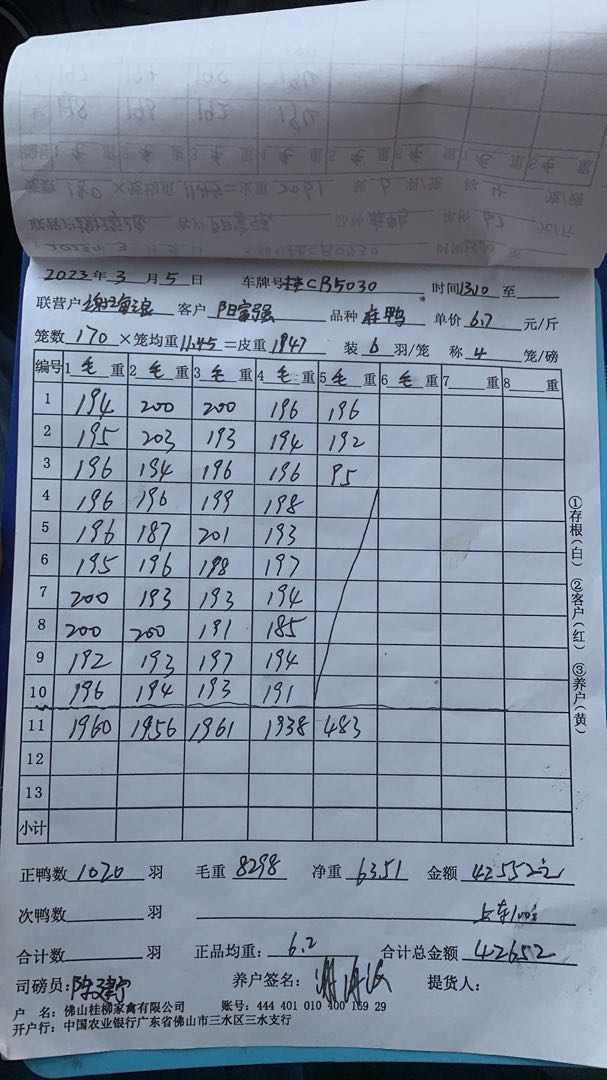 2023年 3 月 5 日 车牌号 CR5030 时间 13:10 至
联营户 客户 阳富强 品种 麻鸭 单价 6.7 元/斤
笼数 170 ×笼均重 11.45 =皮重 1947 装 6 羽/笼 称 4 笼/磅
编号 1 毛 重 2 毛 重 3 毛 重 4 毛 重 5 毛 重 6 毛 重 7 重 8 重
1 194 200 200 196 196
2 195 203 193 194 192
3 196 194 196 196 95
4 196 196 199 198
5 196 187 201 193
6 195 196 198 197
7 200 193 193 194
8 200 200 191 185
9 192 193 197 194
10 196 194 193 191
11 1960 1956 1961 1938 483
12
13
小计
①存根(白) ②客户(红) ③养户(黄)
正鸭数 1020 羽 毛重 8298 净重 6351 金额 42552元
次鸭数 羽 上车100元
合计数 羽 正品均重: 6.2 合计总金额 42652
司磅员: 养户签名: 提货人:
户 名: 佛山桂柳家禽有限公司 账号: 444 401 010 400 169 29
开户行: 中国农业银行广东省佛山市三水区三水支行